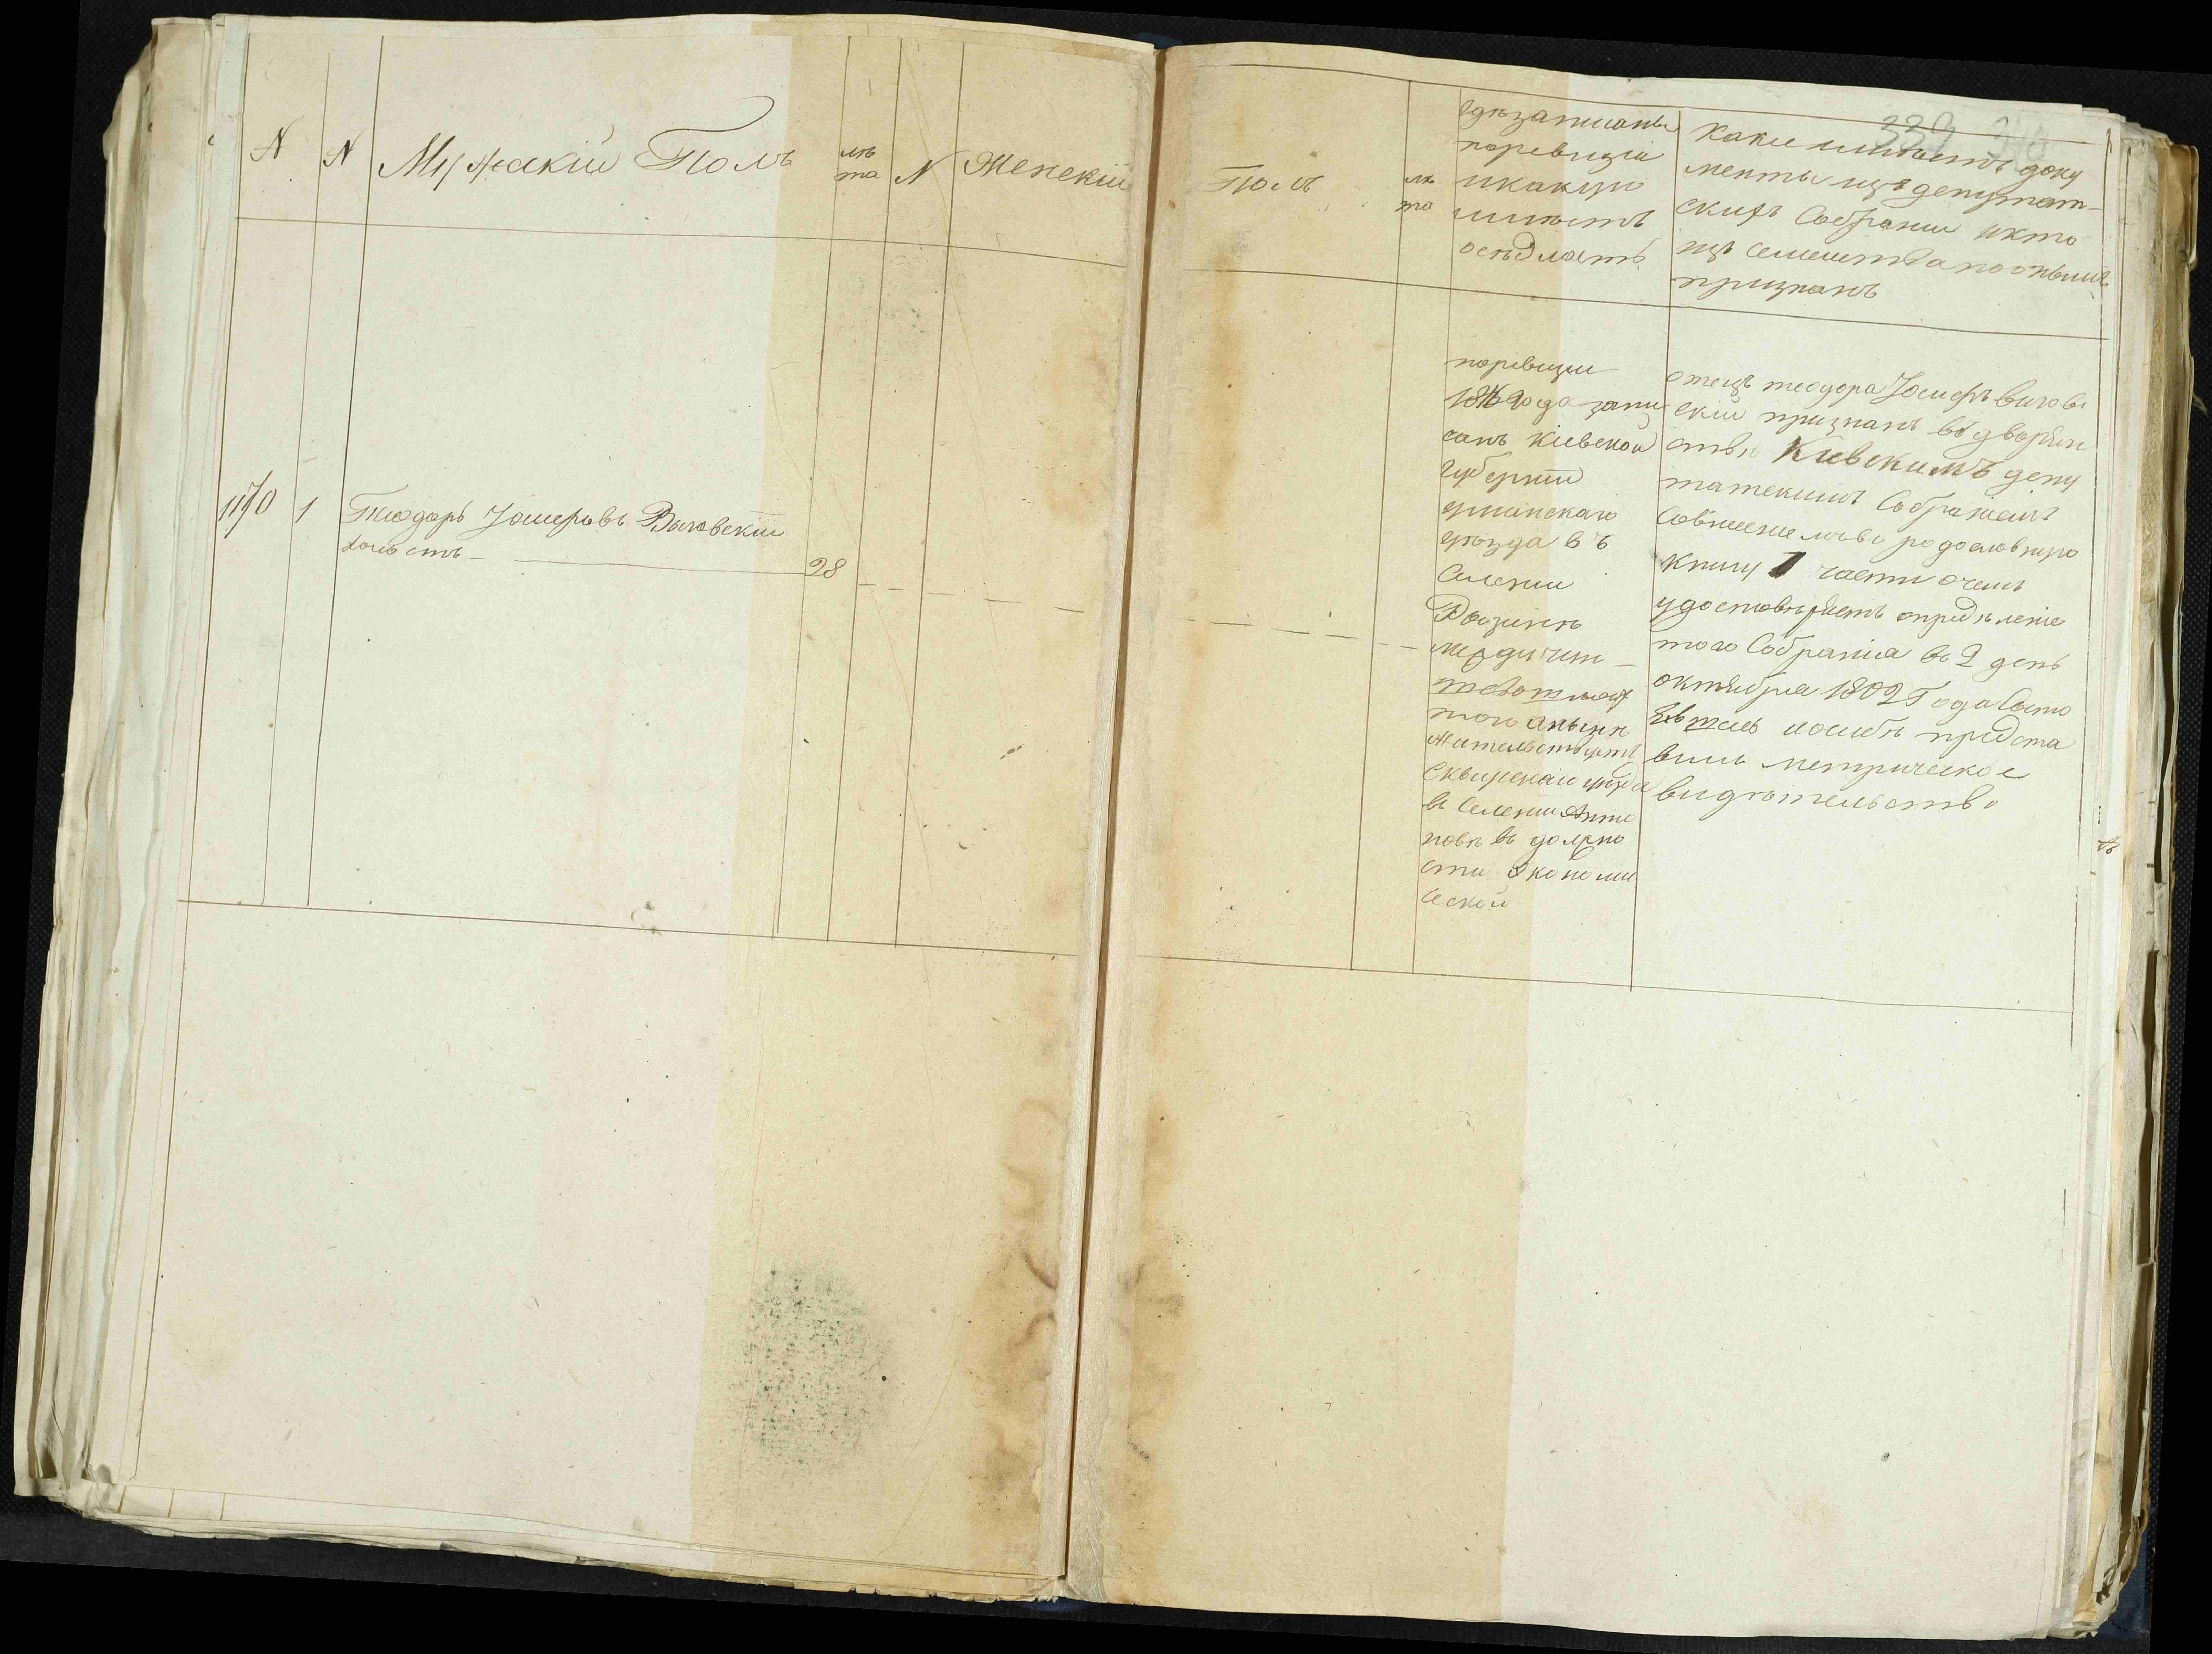 N
N
Мужескій Полъ
лѣ
та
N
Женскій
Полъ
лѣ
та
гдѣ записаны
по ревизіи
и какую
имѣетъ
осѣдлость
339
какие имѣетъ доку
менты изъ депутат-
скихъ Собраніи и кто
изъ семейства по онымъ
признанъ
1170
1
Теодоръ Іосифовъ Выговскій
холостъ
28
по ревизіи
года запи
санъ Кіевской
губерніи
уманскаго
уѣзда въ
Селеніи
того а нынѣ
жительствуетъ
Сквирскаго уѣзда
въ Селеніи Анто
новѣ въ должно
сти Экономи
ческой
отецъ теодора Іосифъ выгов
скій признанъ въ дворян
ствѣ Кіевскимъ депу
татскимъ Собраніемъ
Совнесениемъ въ родословную
Книгу 1 части о чемъ
удостовѣряетъ опредѣленіе
того Собранія въ 2 день
октября 1802 Года Состо
иосифъ предста
вилъ метрическое
видѣтельство